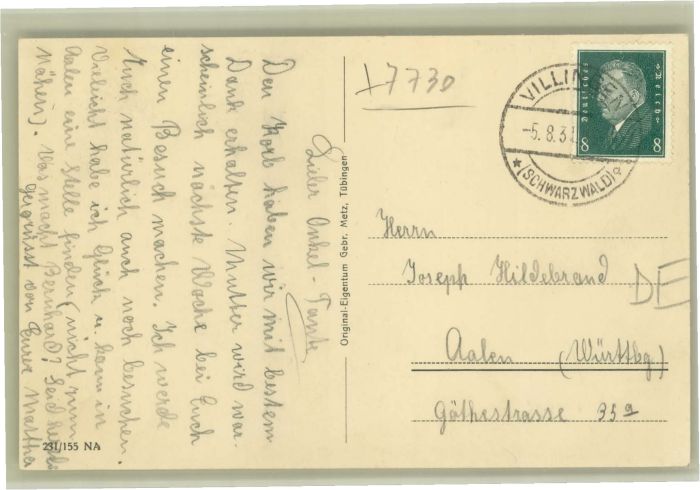 Lieber Onkel - Tante
Den Korb haben wir mit bestem
Dank erhalten. Mutter wird war-
scheinlich nächste Woche bei Euch
einen Besuch machen. Ich werde
Euch natürlich auch noch besuchen.
Vieleicht habe ich Glück u. kann in
Aalen eine Stelle finden (nicht zum
nähen). Was macht Bernhard? Seid
gegrüsst von Eurer Martha
231/155 NA
Original-Eigentum Gebr. Metz, Tübingen
17730
VILLINGEN
-5.8.31
(SCHWARZWALD)
Deutsches Reich
8 8
Herrn
Joseph Hildebrand
DE
Aalen (Württbg)
Göthestrasse 35a